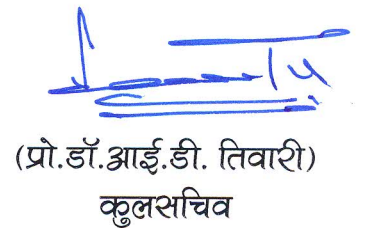 (प्रो.डॉ.आई.डी. तिवारी)
कुलसचिव